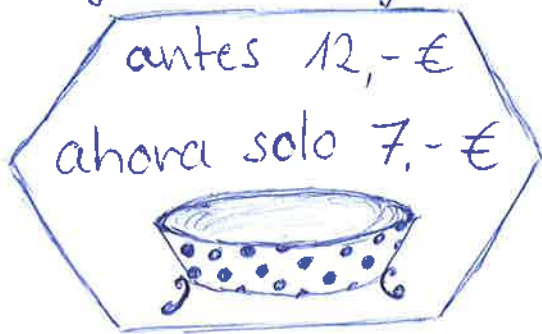 antes 12,- €
ahora solo 7,- €